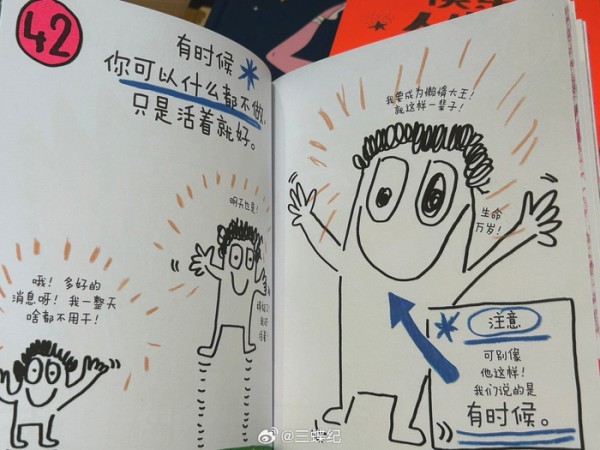 42
有时候
你可以什么都不做,
只是活着就好。
明天也是!
哦! 多好的
消息呀! 我一整天
啥都不用干!
我要成为懒惰大王!
就这样一辈子!
生命
万岁!
注意
可别像
他这样!
我们说的是
有时候。
@三蝶纪